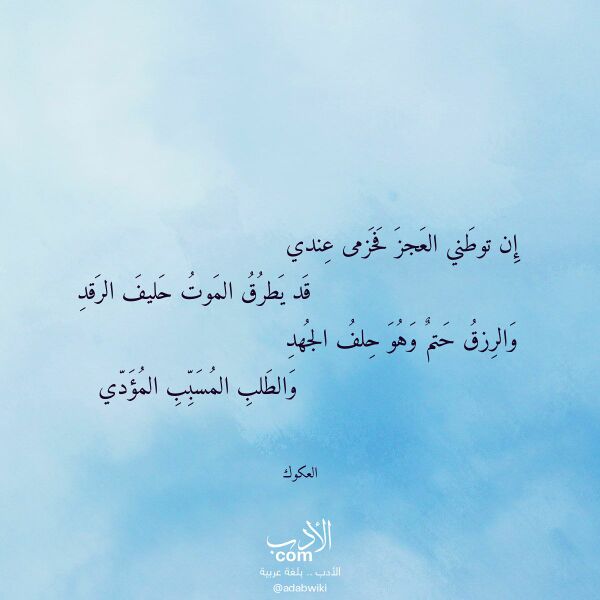 إِن توطَني العَجزَ فَحَزمى عِندي
قَد يَطرُقُ المَوتُ حَليفَ الرَقدِ
وَالرِزقُ حَتمٌ وَهُوَ حِلفُ الجُهدِ
وَالطَلبِ المُسَبِّبِ المُؤَدّي
العكوك
الأدب
com
الأدب .. بلغة عربية
@adabwiki